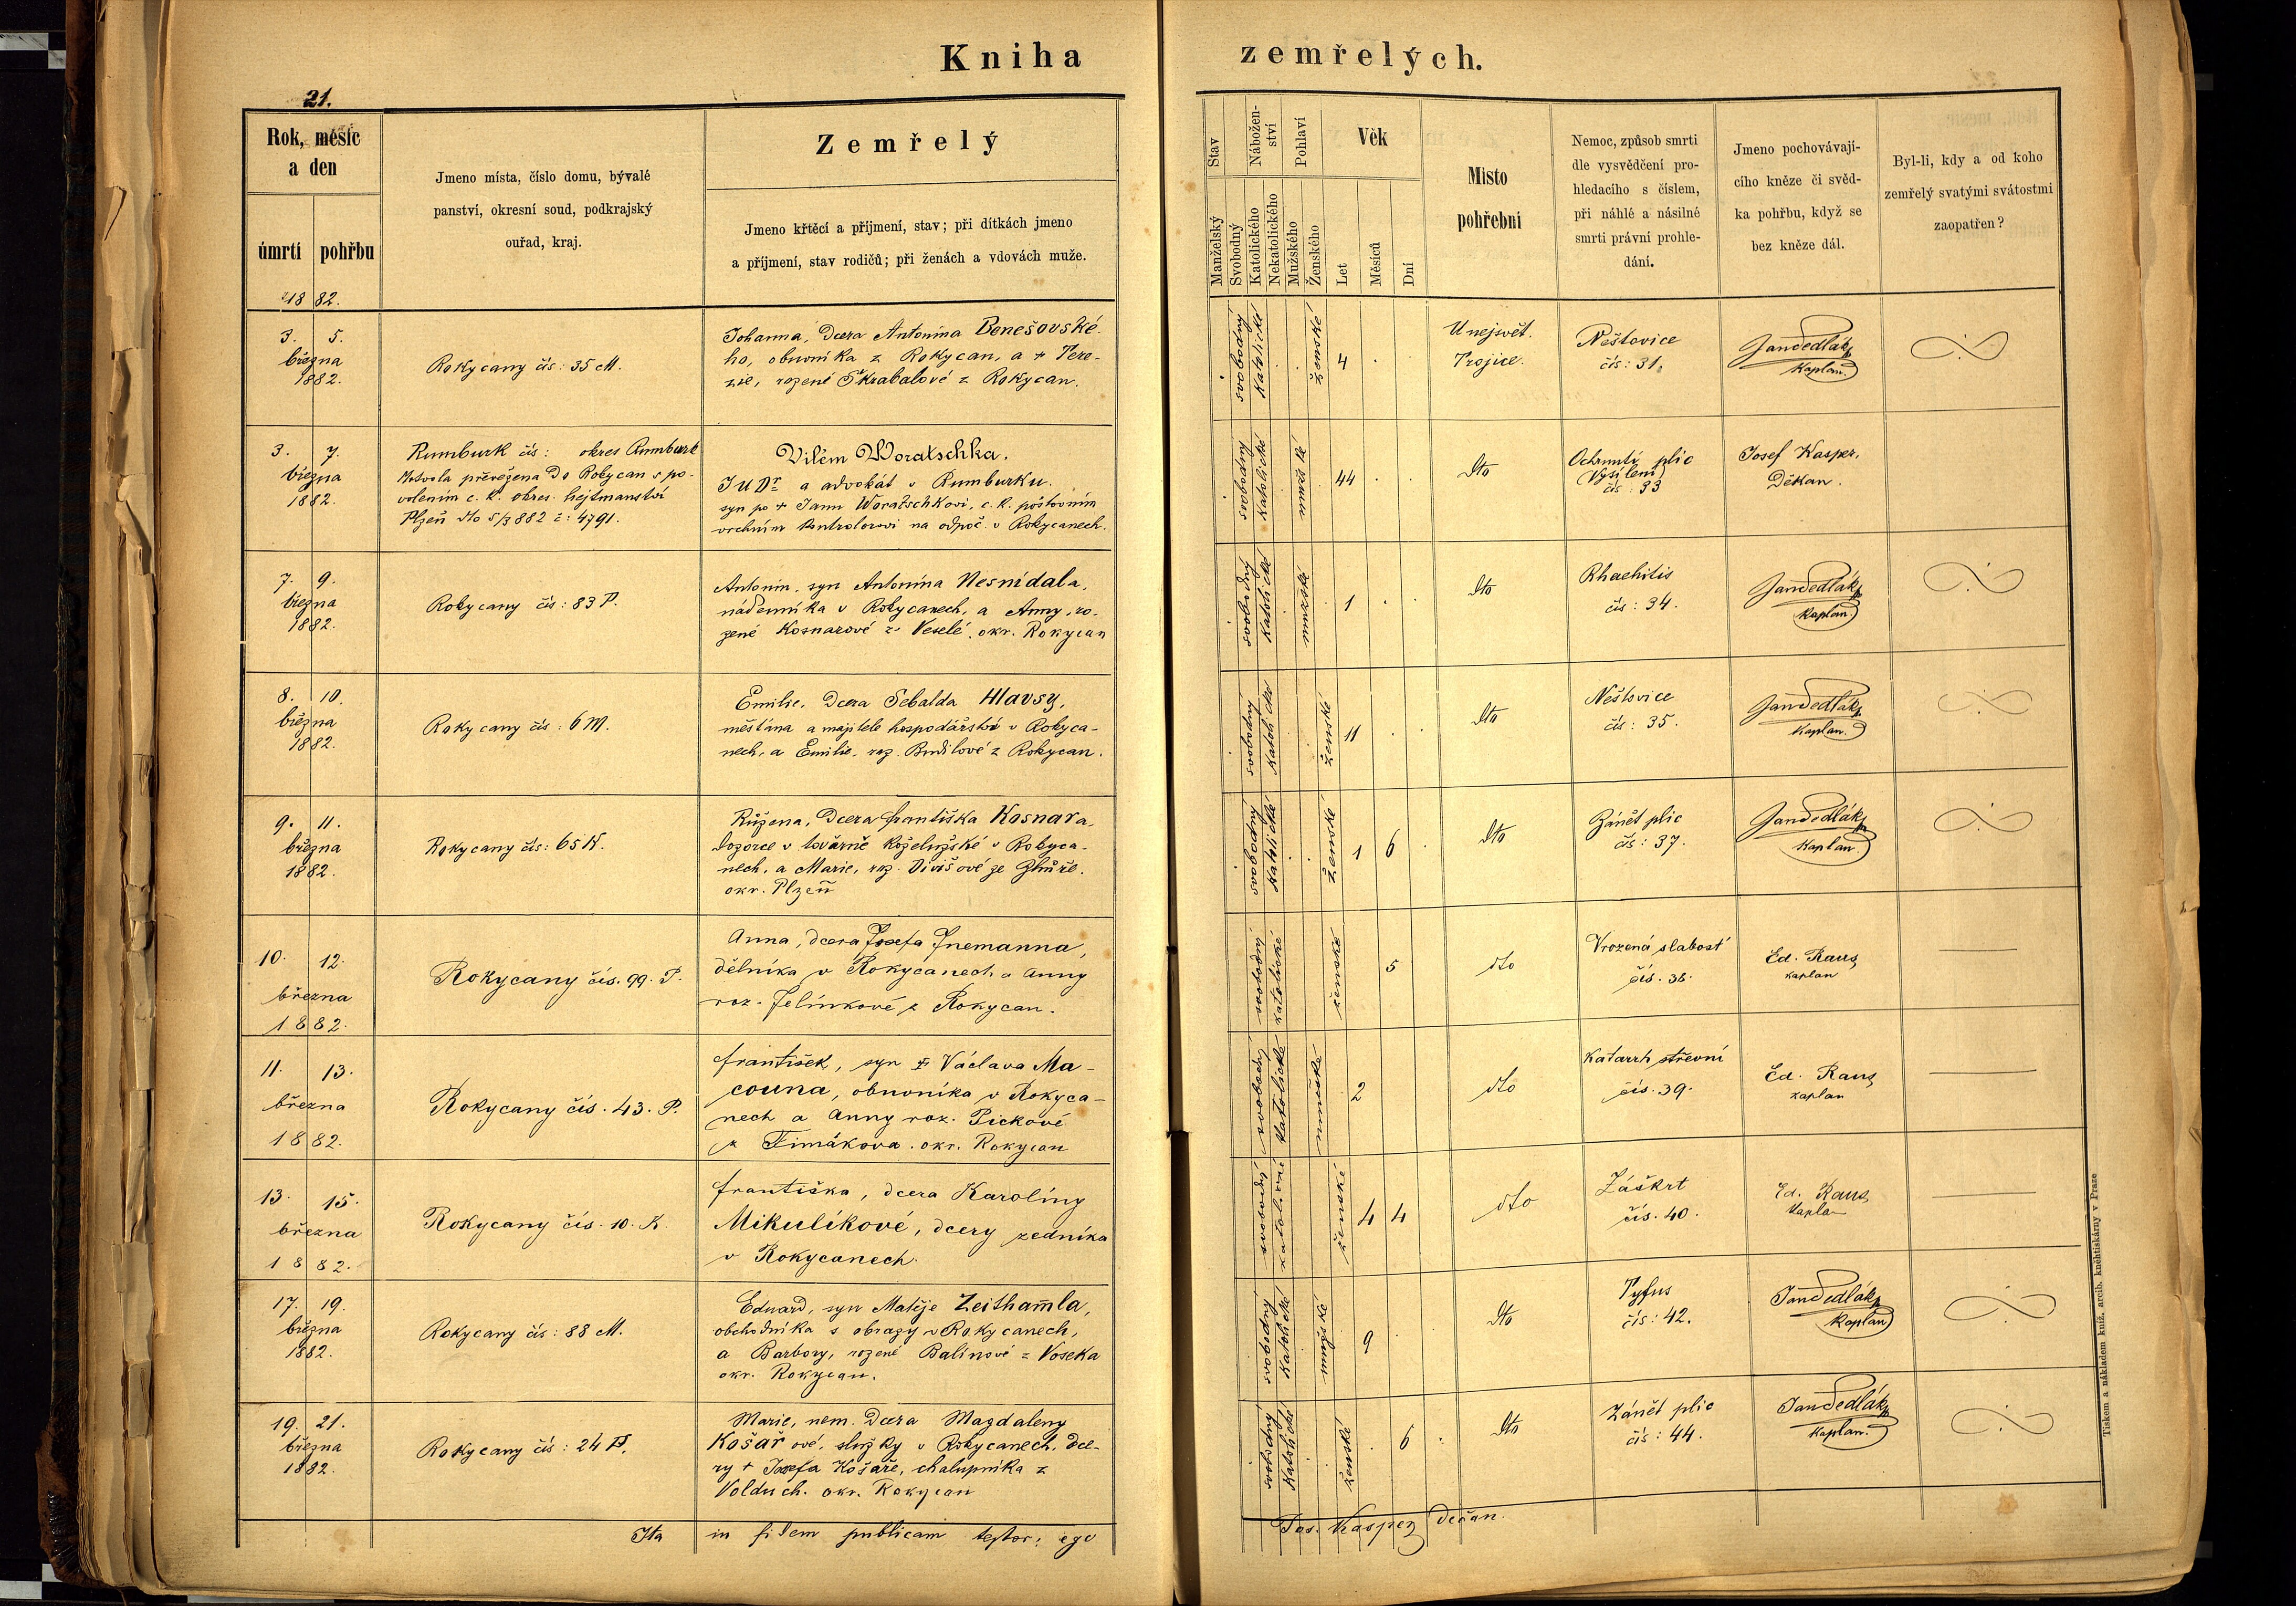 Kniha zemřelých.
21.
Rok, měsíc
a den
úmrtí pohřbu
1882.
Jmeno místa, číslo domu, bývalé
panství, okresní soud, podkrajský
ouřad, kraj.
Zemřelý
Jmeno křtěcí a příjmení, stav; při dítkách jmeno
a příjmení, stav rodičů; při ženách a vdovách muže.
Stav
Manželský
Svobodný
Nábožen-
ství
Katolického
Nekatolického
Pohlaví
Mužského
Ženského
Věk
Let
Měsíců
Dní
Místo
pohřební
Nemoc, způsob smrti
dle vysvědčení pro-
hledacího s číslem,
při náhlé a násilné
smrti právní prohle-
dání.
Jmeno pochovávají-
cího kněze či svěd-
ka pohřbu, když se
bez kněze dál.
Byl-li, kdy a od koho
zemřelý svatými svátostmi
zaopatřen?
3. 5.
března
1882.
Rokycany čís: 35 M.
Johanna, dcera Antonína Benešovské-
ho, obuvníka z Rokycan, a + Tere-
zie, rozené Škrabalové z Rokycan.
svobodný
katolické
ženské
4
U nejsvět.
Trojice.
Neštovice
čís: 31.
Jan Sedlák
kaplan.
3. 7.
března
1882.
Rumburk čís: okres Rumburk
Mrtvola převežena do Rokycan s po-
volením c. k. okres. hejtmanství
Plzeň dto 5/3 882 č: 4791.
Vilém Woratschka.
JUDr a advokát v Rumburku.
syn po + Janu Woratschkovi, c. k. poštovním
vrchním kontrolorovi na odpoč. v Rokycanech.
svobodný
katolické
mužské
44
dto
Ochrnutí plic
Vysílení
čís: 33
Josef Kasper,
Děkan.
7. 9.
března
1882.
Rokycany čís: 83 P.
Antonín, syn Antonína Nesnídala,
nádenníka v Rokycanech, a Anny, ro-
zené Kosnarové z Veselé, okr. Rokycan
svobodný
katolické
mužské
1
dto
Rhachitis
čís: 34.
Jan Sedlák
kaplan
8. 10.
března
1882.
Rokycany čís: 6 M.
Emilie, dcera Sebalda Hlavsy,
měšťana a majitele hospodářství v Rokyca-
nech, a Emilie, roz. Budilové z Rokycan.
svobodný
katolické
ženské
11
dto
Neštovice
čís: 35.
Jan Sedlák
kaplan.
9. 11.
března
1882.
Rokycany čís: 65 K.
Růžena, dcera Františka Kosnara,
dozorce v továrně koželužské v Rokyca-
nech, a Marie, roz. Divišové ze Zhůře.
okr. Plzeň
svobodný
katolické
ženské
1 6
dto
Zánět plic
čís: 37.
Jan Sedlák
kaplan
10. 12.
března
1882.
Rokycany čís. 99. P.
Anna, dcera Josefa Jnemanna,
dělníka v Rokycanech a Anny
roz. Jelínkové z Rokycan.
svobodný
katolické
ženské
5
dto
Vrozená slabost
čís. 36.
Ed. Raus
kaplan
11. 13.
března
1882.
Rokycany čís. 43. P.
František, syn Václava Ma-
couna, obuvníka v Rokyca-
nech a Anny roz. Pickové
z Timákova. okr. Rokycan
svobodný
katolické
mužské
2
dto
Katarrh střevní
čís. 39.
Ed. Raus
kaplan
13. 15.
března
1882.
Rokycany čís. 10. K.
Františka, dcera Karolíny
Mikulíkové, dcery zedníka
v Rokycanech.
svobodný
katolické
ženské
4 4
dto
Záškrt
čís. 40.
Ed. Raus
kaplan
17. 19.
března
1882.
Rokycany čís: 88 M.
Eduard, syn Matěje Zeithamla,
obchodníka s obrazy v Rokycanech,
a Barbory, rozené Balínové z Voseka
okr. Rokycan.
svobodný
katolické
mužské
9
dto
Tyfus
čís: 42.
Jan Sedlák
kaplan
19. 21.
března
1882.
Rokycany čís: 24 P.
Marie, nem. dcera Magdaleny
Košařové, služky v Rokycanech, dce-
ry + Josefa Košaře, chalupníka z
Volduch. okr. Rokycan
svobodný
katolické
ženské
6
dto
Zánět plic
čís: 44.
Jan Sedlák
kaplan.
Ita in fidem publicam testor: ego Jos. Kasper děkan.
Tiskem a nákladem kníž. arcib. knihtiskárny v Praze